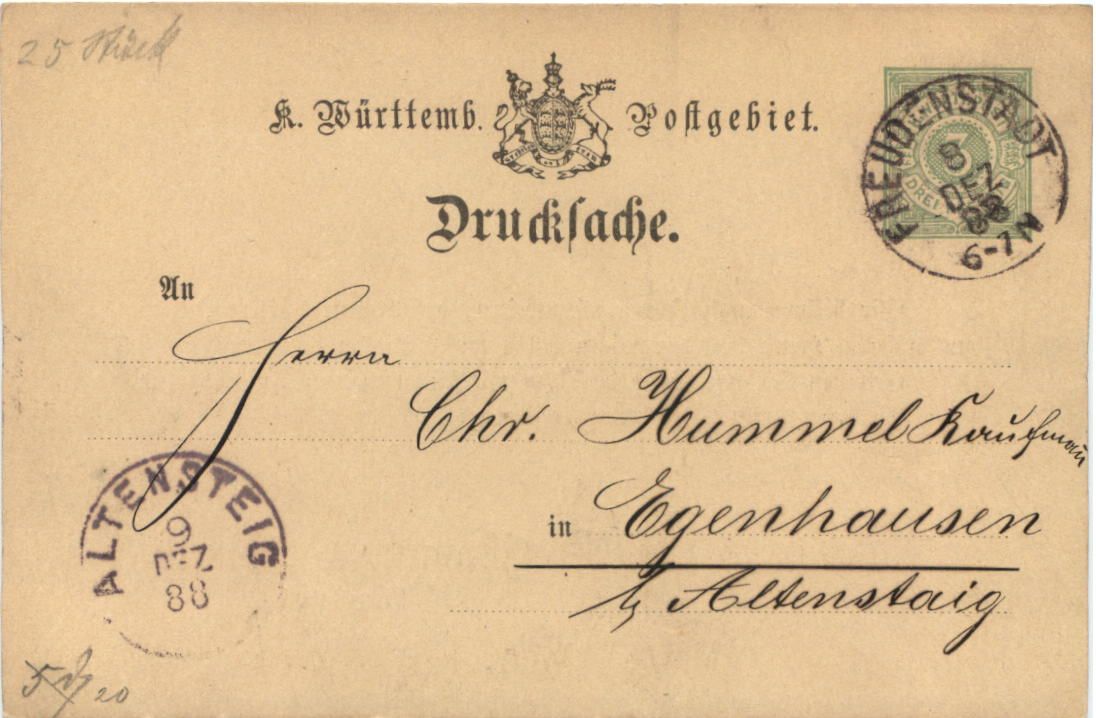 25 Stück
K. Württemb. Postgebiet.
FREUDENSTADT
8
DEZ
88
6-7 N
3
DREI
Drucksache.
An
Herrn
Chr. Hummel Kaufman
in Egenhausen
b/ Altenstaig
ALTENSTEIG
9
DEZ
88
5 20